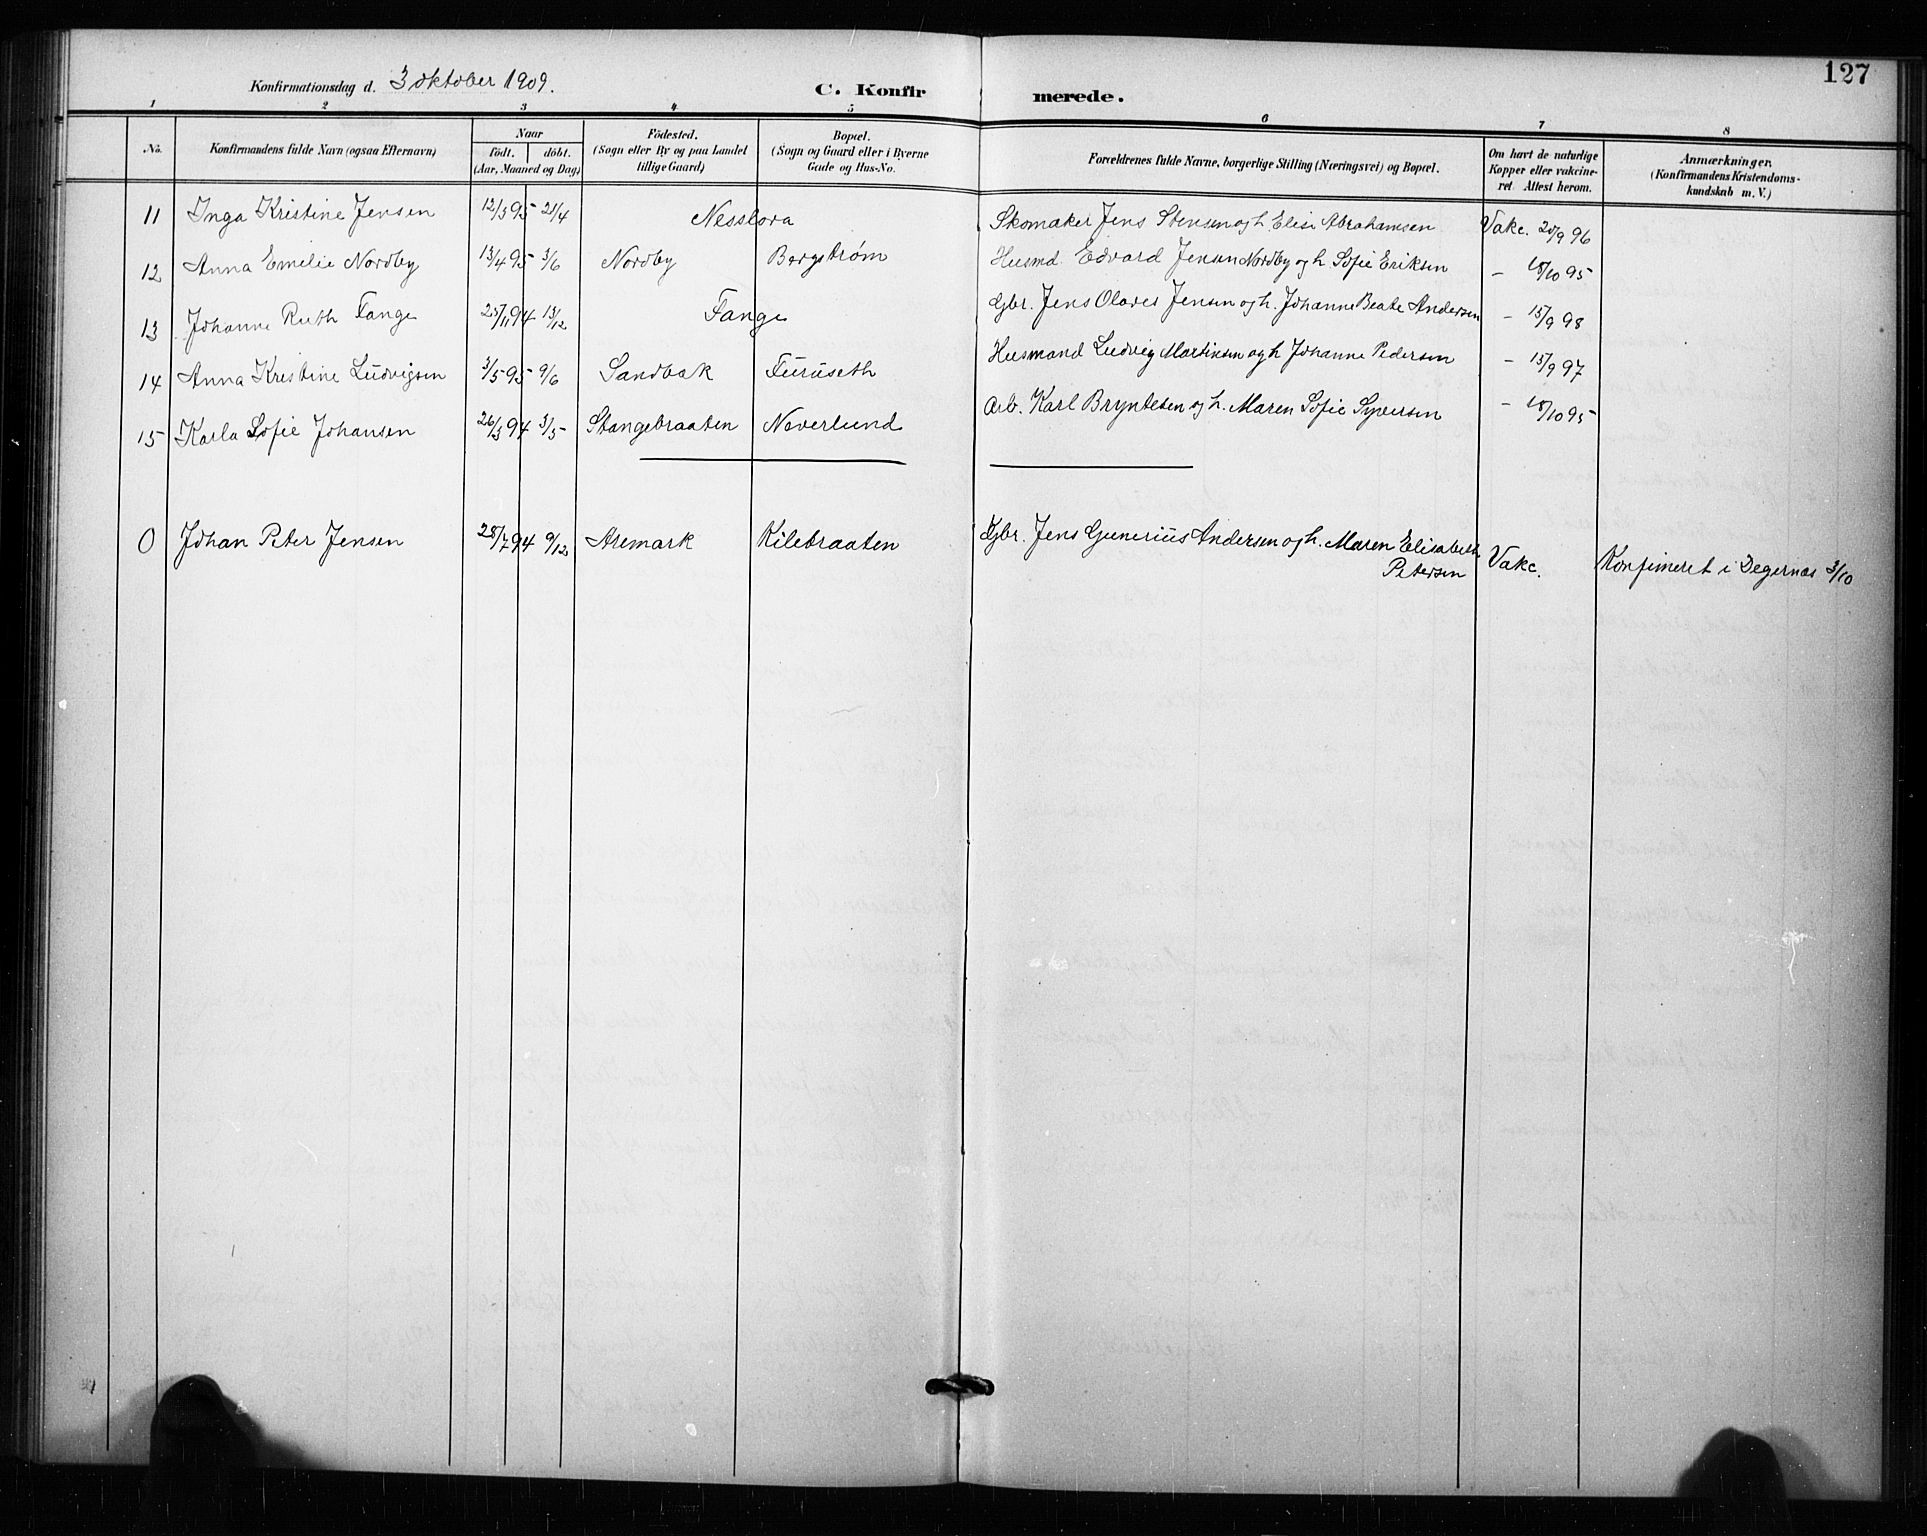 127
Konfirmationsdag d. 3 oktober 1909.
C. Konfirmerede.
1 2 3 4 5 6 7 8
No. Konfirmandens fulde Navn (ogsaa Efternavn) Naar födt. döbt. (Aar, Maaned og Dag) Födested. (Sogn eller By og paa Landet tillige Gaard) Bopæl. (Sogn og Gaard eller i Byerne Gade og Hus-No. Forældrenes fulde Navne, borgerlige Stilling (Næringsvei) og Bopæl. Om havt de naturlige Kopper eller vakcineret. Attest herom. Anmærkninger. (Konfirmandens Kristendomskundskab m. V.)
11 Inga Kristine Jensen 12/3 95 21/4 Nesslora Skomaker Jens Stensen og h. Elise Abrahamsen Vakc. 20/9 96
12 Anna Emilie Nordby 13/4 95 3/6 Nordby Bergstrøm Husmd. Edvard Jensen Nordby og h Sofie Eriksen – 18/10 95
13 Johanne Ruth Fange 25/11 94 13/12 Fange Gbr. Jens Olaves Jensen og h. Johanne Beate Andersen – 15/9 98
14 Anna Kristine Ludvigsen 3/5 95 9/6 Sandbæk Furuseth Husmand Ludvig Martinsen og h Johanne Pedersen – 15/9 97
15 Karla Sofie Johansen 26/3 94 3/5 Stangebraaten Neverlund Arb. Karl Bryntesen og h. Maren Sofie Syversen – 18/10 95
0 Johan Peter Jensen 28/7 94 9/12 Aremark Kilebraaten Gbr. Jens Gunerius Andersen og h. Maren Elisabeth
Petersen Vakc. Konfimeret i Degernæs 3/10